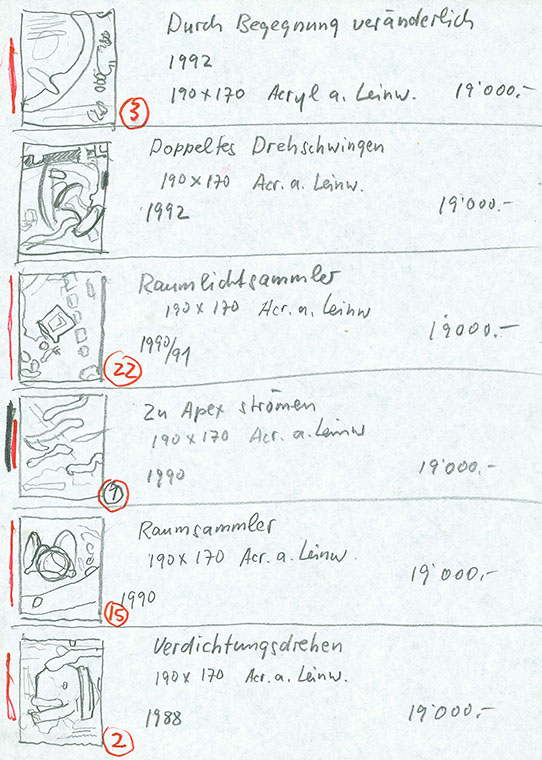 Durch Begegnung veränderlich
1992
190 x 170 Acryl a. Leinw. 19'000.-
3
Doppeltes Drehschwingen
190 x 170 Acr. a. Leinw.
1992 19'000.-
Raumlichtsammler
190 x 170 Acr. a. Leinw
1990/91 19000.-
22
Zu Apex strömen
190 x 170 Acr. a. Leinw
1990 19'000.-
9
Raumsammler
190 x 170 Acr. a. Leinw.
1990 19'000.-
15
Verdichtungsdrehen
190 x 170 Acr. a. Leinw.
1988 19'000.-
2